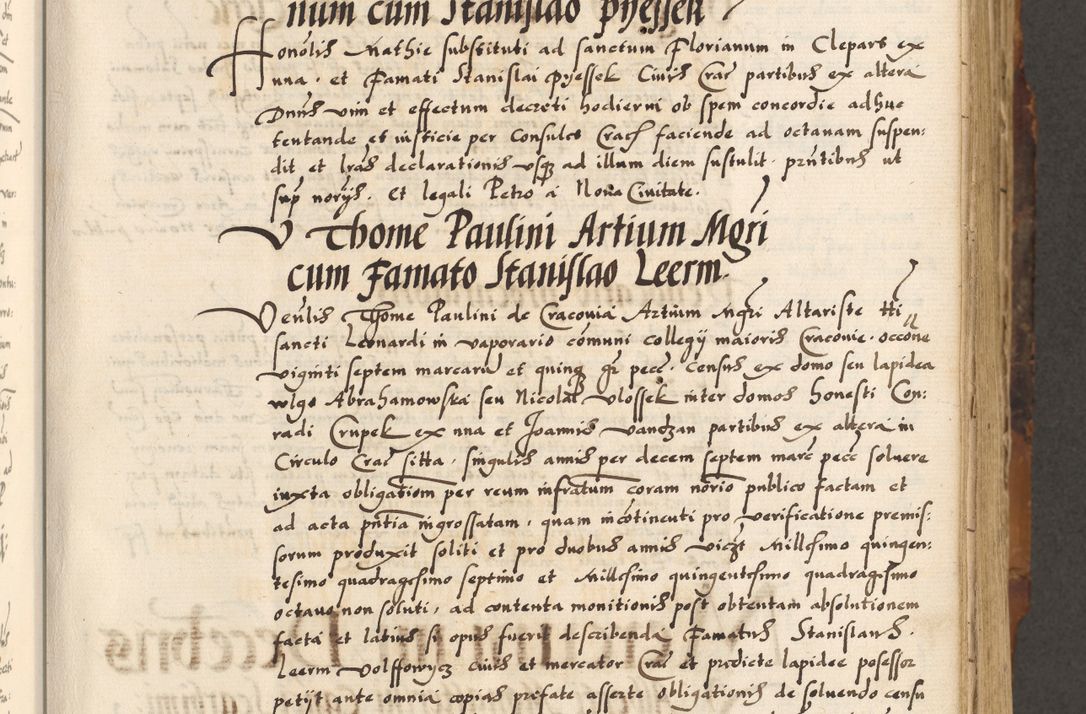 num cum Stanislao Pyessek
Honolis Mathie substituti ad sanctum Florianum in Clepars ex
una . et Famati Stanislai Pyessek Civis Crac partibus ex altera
Dnus vim et effectum decreti hodierni ob spem concordie adhuc
tentande et iusticie per Consules Crac faciende ad octavam suspen:
dit et lras declarationis usq ad illum diem sustulit . pntibus ut
sup norys . Et legali Petro a Nova Civitate .
V Thome Paulini Artium Mgri
cum Famato Stanislao Leerm .
Venlis Thome Paulini de Cracovia Artium Mgri Altariste tti
sancti Leonardi in vaporario comuni collegy maioris Cracovie . occone
viginti septem marcaru et quinq gr pecc . Census ex domo seu lapidea
vulgo Abrahamowska seu Nicolai Vlossek inter domos honesti Con:
radi Crupek ex una et Joannis Vandzan partibus ex altera in
Circulo Crac sitta . singulis annis per decem septem marc pecc solvere
iuxta obligatiom per reum infratum coram norio publico factam et
ad acta pntia ingrossatam . quam in cotinenti pro verificatione premis:
sorum produxit soliti et pro duobus annis vicz Millesimo quingen:
tesimo quadragesimo septimo et Millesimo quingentesimo quadragesimo
octavo non soluti . ad contenta monitionis post obtentam absolutionem
facta et latius si opus fuerit describenda Famatus Stanislaus .
Leerm Volffowycz civis et mercator Crac et predicte lapidee posessor
petyt ante omnia copias prefate asserte obligationis de solvendo censu